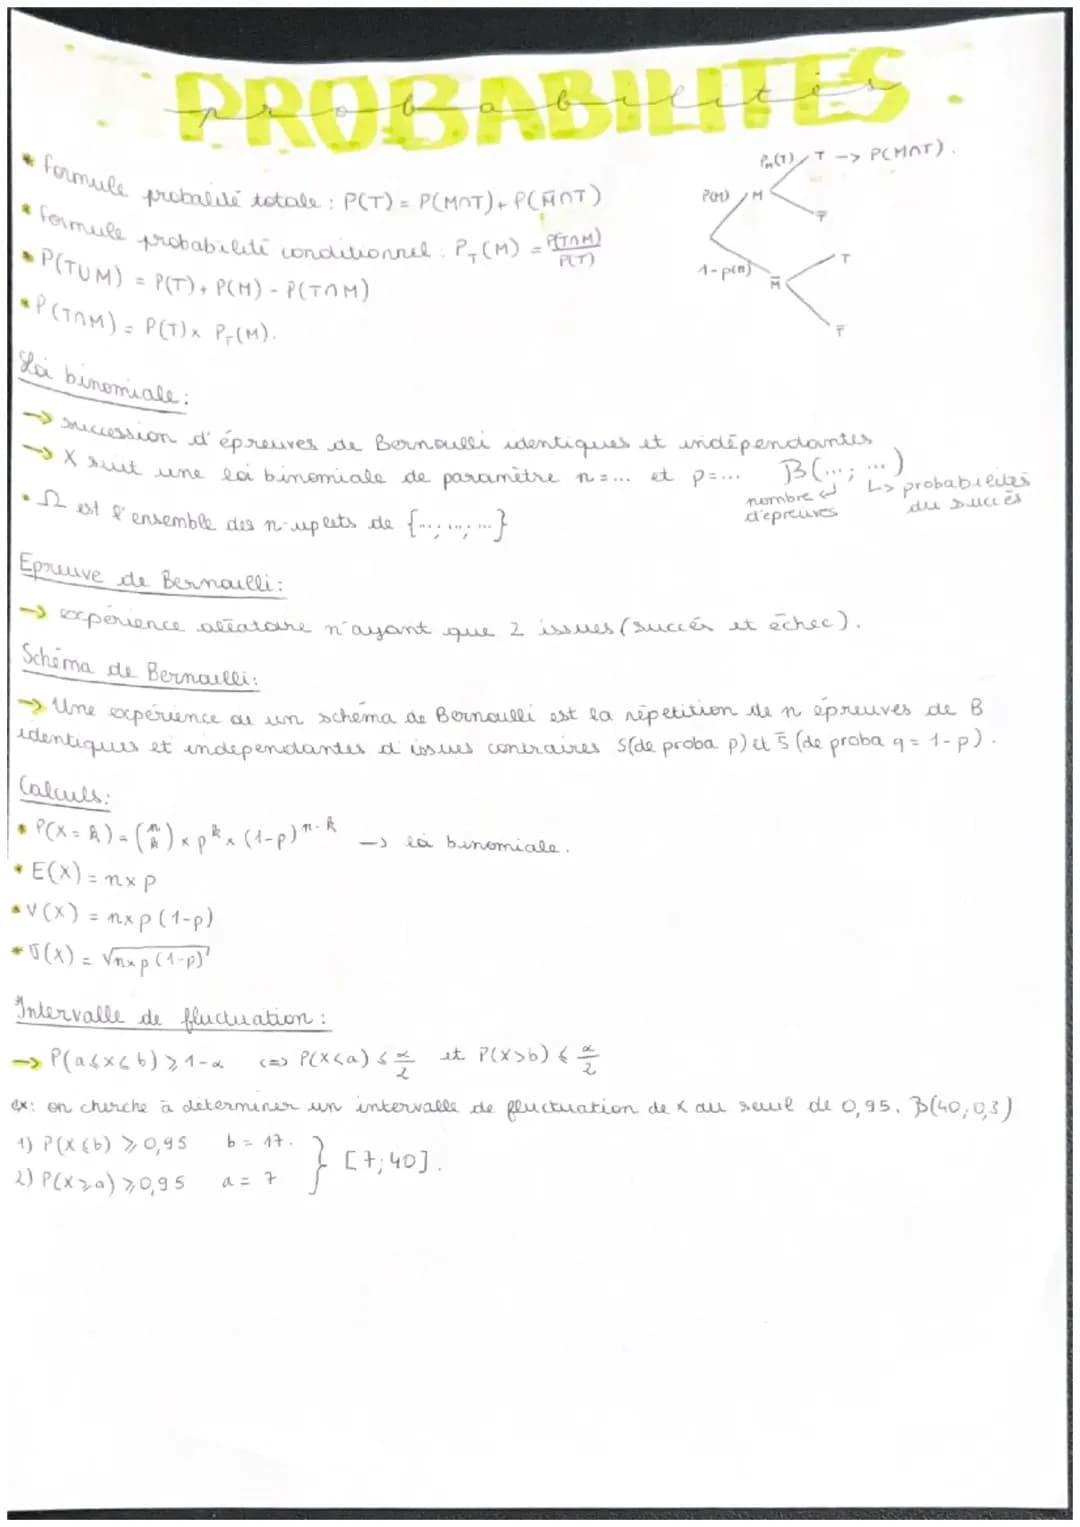 PROBABILITES
probabilités
* formule probalité totale : P(T) = P(M∩T) + P(M̄∩T)
* formule probabilité conditionnel : P_T(M) = P(T∩M) / P(T)
* P(T∪M) = P(T) + P(M) - P(T∩M)
* P(T∩M) = P(T) × P_T(M).
P_M(T) T -> P(M∩T).
P(M) M
T̄
1-p(M) M̄ T
T̄
Loi binomiale :
→ succession d'épreuves de Bernoulli identiques et indépendantes
→ X suit une loi binomiale de paramètre n=... et p=... B(...; ...)
nombre d'epreuves
↳ probabilités du succès
• Ω est l'ensemble des n-uplets de {...; ...; ...}
Epreuve de Bernoulli :
→ expérience aléatoire n'ayant que 2 issues (succés et échec).
Schéma de Bernoulli :
→ Une expérience ou un schéma de Bernoulli est la répetition de n épreuves de B
identiques et independantes d'issues contraires S(de proba p) et S̄ (de proba q = 1-p).
Calculs :
* P(X = k) = (n k) × p^k × (1-p)^(n-k) → loi binomiale.
* E(X) = n×p
* V(X) = n×p (1-p)
* σ(X) = √n×p (1-p)
Intervalle de fluctuation :
→ P(a≤X≤b) ≥ 1-α <=> P(X<a) ≤ α/2 et P(X>b) ≤ α/2
ex: on cherche à déterminer un intervalle de fluctuation de X au seuil de 0,95. B(40;0,3)
1) P(X≤b) ≥ 0,95 b = 17.
2) P(X≥a) ≥ 0,95 a = 7
} [7;40].